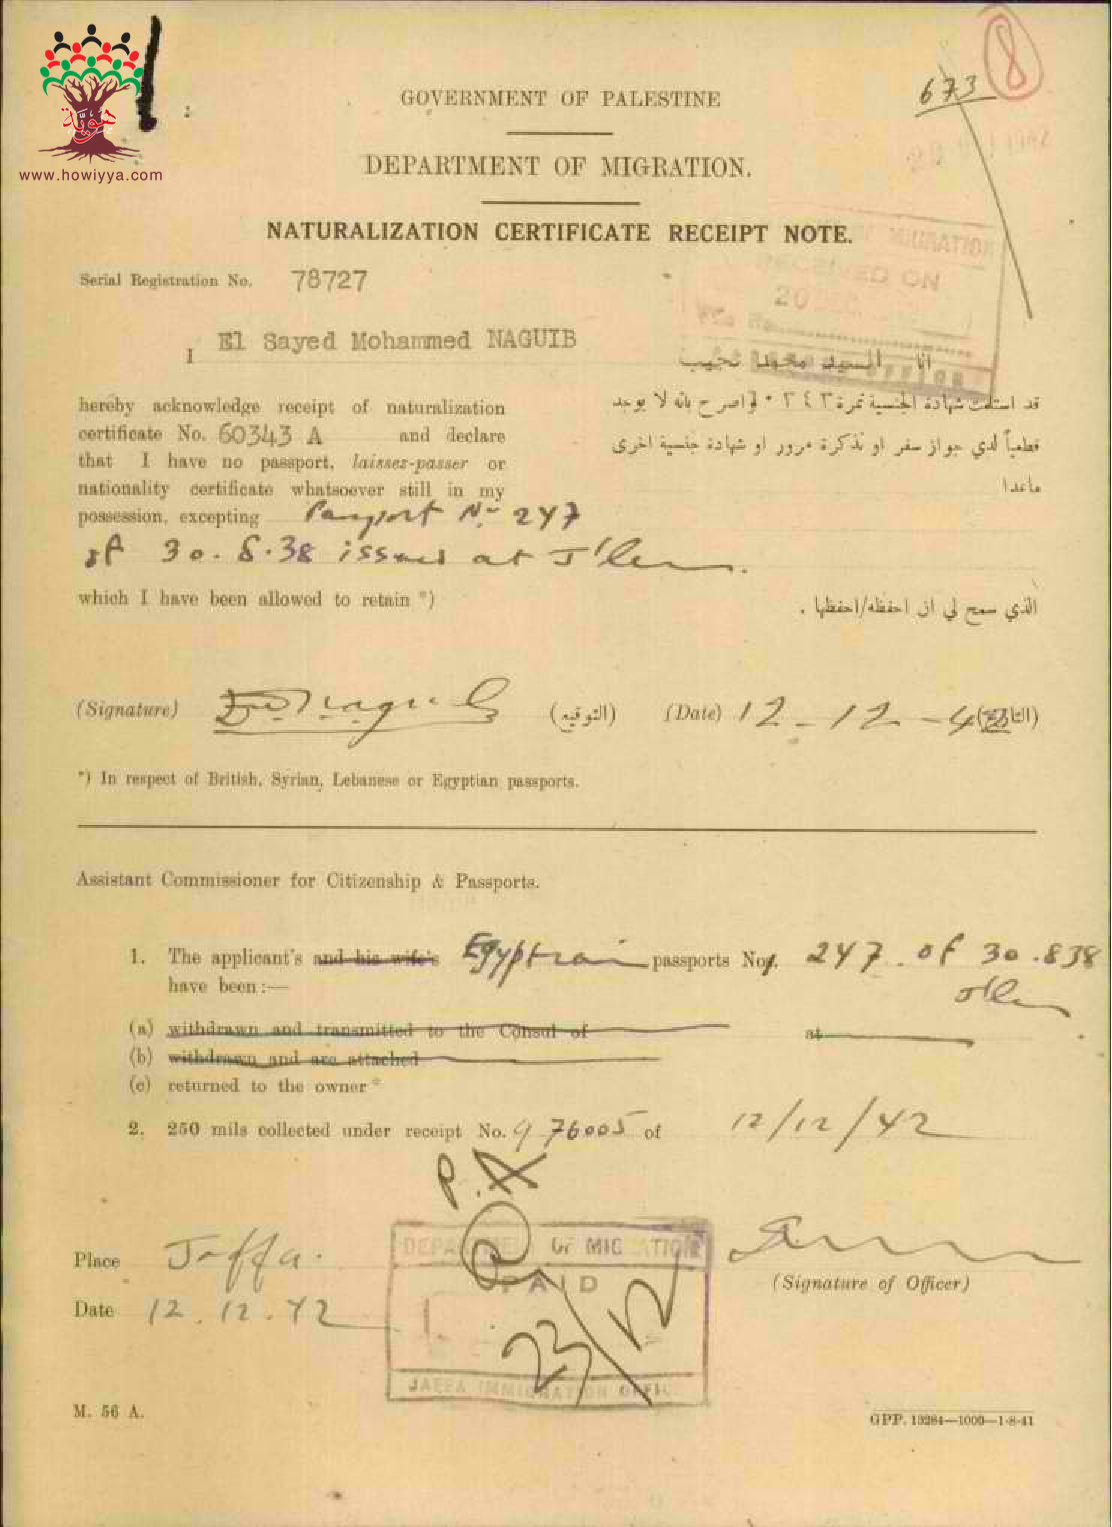 هوية
www.howiyya.com
8
673
GOVERNMENT OF PALESTINE
DEPARTMENT OF MIGRATION.
NATURALIZATION CERTIFICATE RECEIPT NOTE.
OF MIGRATION
RECEIVED ON
20
Serial Registration No. 78727
I El Sayed Mohammed NAGUIB
انا السيد محمد نجيب
hereby acknowledge receipt of naturalization
certificate No. 60343 A and declare
that I have no passport, laisser-passer or
nationality certificate whatsoever still in my
possession, excepting Passport No. 247
of 30.8.38 issued at J'lem.
which I have been allowed to retain *)
قد استلمت شهادة الجنسية نمرة ٦٠٣٤٣ واصرح بانه لا يوجد
قطعياً لدي جواز سفر او تذكرة مرور او شهادة جنسية اخرى
ماعدا
الذي سمح لي ان احفظه/احفظها .
(Signature) (التوقيع) (Date) 12-12-42 (التاريخ)
*) In respect of British, Syrian, Lebanese or Egyptian passports.
Assistant Commissioner for Citizenship & Passports.
1. The applicant's and his wife's Egyptian passports Nos. 247 of 30.838
J'lem
have been:—
(a) withdrawn and transmitted to the Consul of at
(b) withdrawn and are attached
(c) returned to the owner *
2. 250 mils collected under receipt No. 976005 of 12/12/42
P.A
DEPARTMENT OF MIGRATION
PAID
23/12
JAFFA IMMIGRATION OFFICE
Place Jaffa.
Date 12.12.42
(Signature of Officer)
M. 56 A.
GPP. 13284—1000—1-8-41